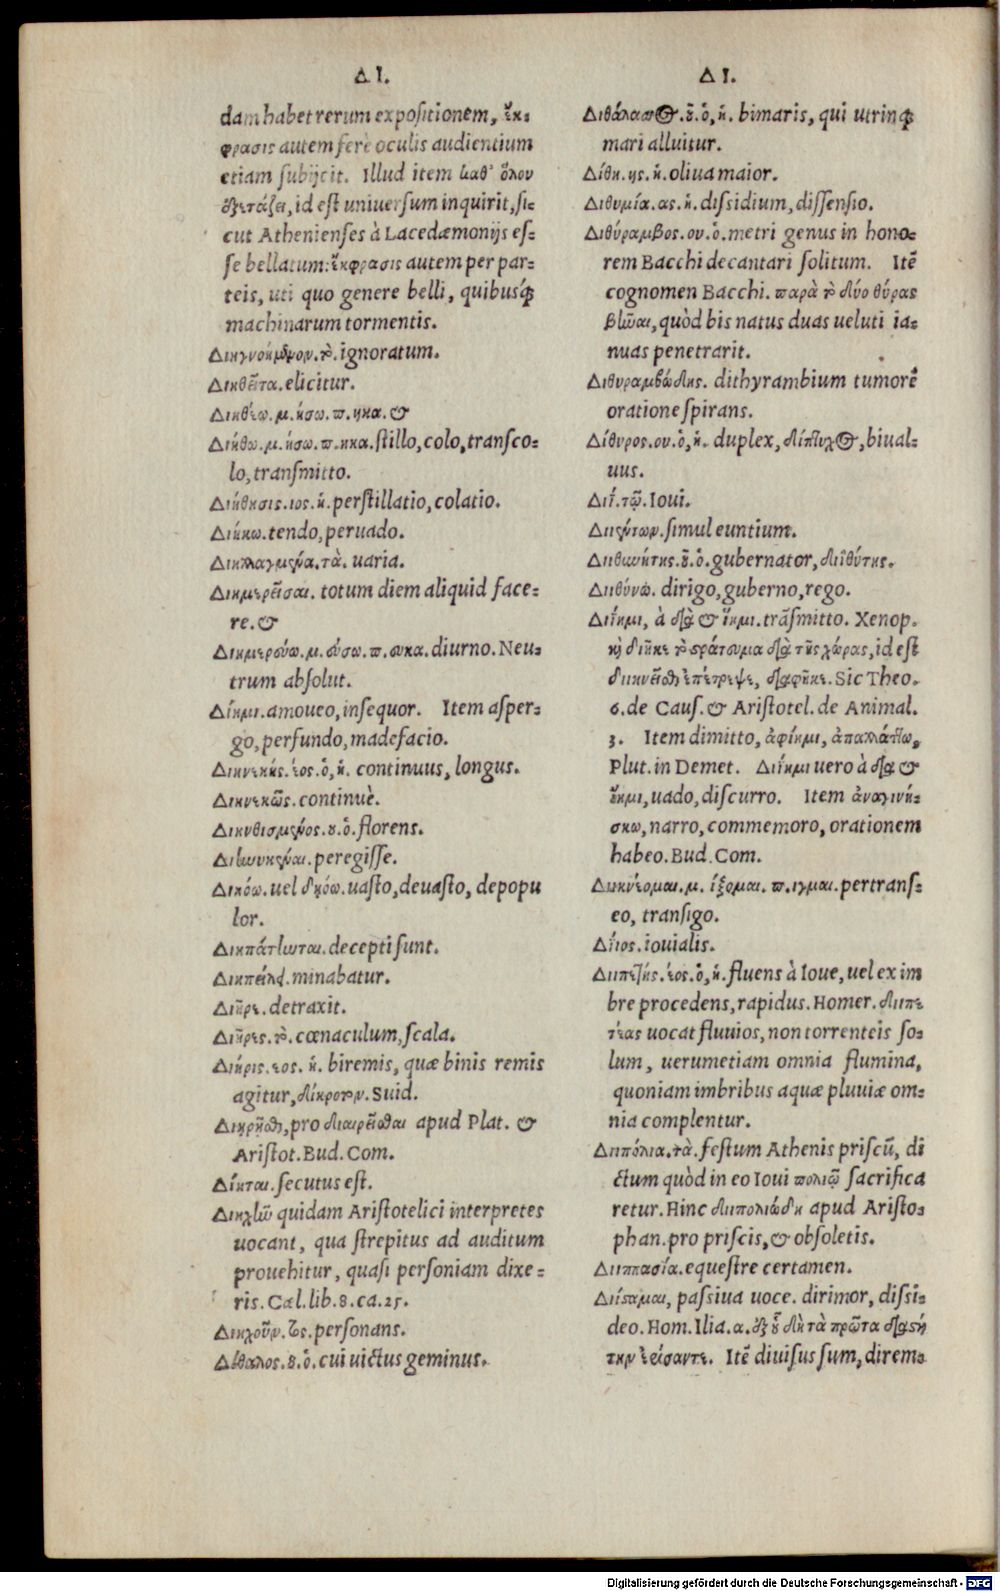 Δ I.
dam habet rerum expositionem, ἔκ-
φρασις autem ferè oculis audientium
etiam subijcit. Illud item καθ' ὅλου
ἐξετάζει, id est uniuersum inquirit, si-
cut Athenienses à Lacedæmonijs es-
se bellatum: ἔκφρασις autem per par-
teis, uti quo genere belli, quibusq́
machinarum tormentis.
Διηγνοημένον. τὸ. ignoratum.
Διηθεῖται. elicitur.
Διηθέω. μ. ήσω. π. ηκα. &
Διήθω. μ. ήσω. π. ηκα. stillo, colo, transco-
lo, transmitto.
Διήθησις. ιος. ἡ. perstillatio, colatio.
Διήκω. tendo, peruado.
Διηλλαγμένα. τὰ. uaria.
Διημερεῖσαι. totum diem aliquid face-
re. &
Διημερεύω. μ. εύσω. π. ευκα. diurno. Neu-
trum absolut.
Δίημι. amoueo, insequor. Item asper-
go, perfundo, madefacio.
Διηνεκής. έος. ὁ, ἡ. continuus, longus.
Διηνεκῶς. continuè.
Διηνθισμένος. ου. ὁ. florens.
Διηνυκέναι. peregisse.
Διηόω. uel δηόω. uasto, deuasto, depopu
lor.
Διηπάτηνται. decepti sunt.
Διηπείλει. minabatur.
Διῆρε. detraxit.
Διῆρες. τὸ. cœnaculum, scala.
Διήρις. εος. ἡ. biremis, quæ binis remis
agitur, δίκροτον. Suid.
Διῃρῆσθαι, pro διαιρεῖσθαι apud Plat. &
Aristot. Bud. Com.
Δίηται. secutus est.
Διηχῆ quidam Aristotelici interpretes
uocant, qua strepitus ad auditum
prouehitur, quasi personiam dixe-
ris. Cæl. lib. 8. ca. 25.
Διηχοῦν. personans.
Δίθαλος. ου. ὁ. cui uictus geminus.
Δ I.
Διθάλασσος. ου. ὁ, ἡ. bimaris, qui utrinq́
mari alluitur.
Δίθη. ης. ἡ. oliua maior.
Διθυμία. ας. ἡ. dissidium, dissensio.
Διθύραμβος. ου. ὁ. metri genus in hono-
rem Bacchi decantari solitum. Itẽ
cognomen Bacchi. παρὰ τὸ δύο θύρας
βῶναι, quòd bis natus duas ueluti ia-
nuas penetrarit.
Διθυραμβώδης. dithyrambium tumorẽ
oratione spirans.
Δίθυρος. ου. ὁ, ἡ. duplex, δίπτυχος, biual-
uus.
Διΐ. τῷ. Ioui.
Διϊέντων. simul euntium.
Διϊθυντής. οῦ. ὁ. gubernator, διϊθύτης.
Διϊθύνω. dirigo, guberno, rego.
Διΐημι, à διὰ & ἵημι. trãsmitto. Xenop.
καὶ διῆκε τὸ στράτευμα διὰ τῆς χώρας, id est
διικνεῖσθαι ἐπέτρεψε, διαφῆκε. Sic Theo.
6. de Caus. & Aristotel. de Animal.
3. Item dimitto, ἀφίημι, ἀπαλλάττω,
Plut. in Demet. Διΐημι uero à διὰ &
ἵημι, uado, discurro. Item ἀναγινώ-
σκω, narro, commemoro, orationem
habeo. Bud. Com.
Διϊκνέομαι. μ. ίξομαι. π. ιγμαι. pertrans-
eo, transigo.
Δίϊος. iouialis.
Διϊπετής. έος. ὁ, ἡ. fluens à Ioue, uel ex im
bre procedens, rapidus. Homer. διϊπε
τέας uocat fluuios, non torrenteis so-
lum, uerumetiam omnia flumina,
quoniam imbribus aquæ pluuiæ om-
nia complentur.
Διϊπόλια. τὰ. festum Athenis priscũ, di
ctum quòd in eo Ioui πολιῷ sacrifica
retur. Hinc διϊπολιώδη apud Aristo-
phan. pro priscis, & obsoletis.
Διϊππασία. equestre certamen.
Διΐσταμαι, passiua uoce. dirimor, dissi-
deo. Hom. Ilia. α. ἐξ οὗ δὴ τὰ πρῶτα διαστή
την ἐρίσαντε. Itẽ diuisus sum, direm-
Digitalisierung gefördert durch die Deutsche Forschungsgemeinschaft - DFG